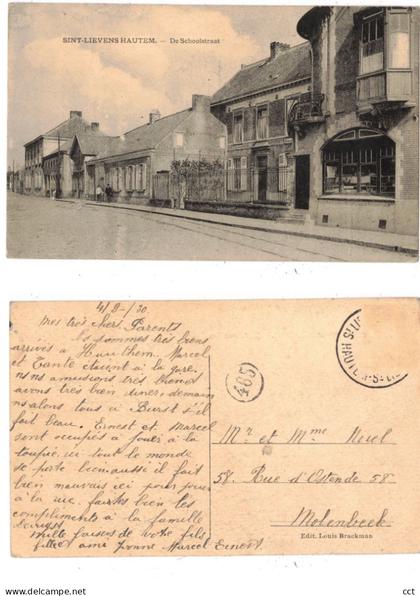 SINT-LIEVENS HAUTEM. — De Schoolstraat
4/9-/30
Mes très chers Parents
Ns sommes très biens
arrivés à Hauthem. Marcel
et Tante étaient à la gare
ns ns amusions très biens
avons très bien diner, demain
ns alons tous à Burst s'il
fait beau. Ernest et Marcel
sont occupés a jouer à la
toupie ici tout le monde
se porte bien aussi il fait
bien mauvais ici pour jouer
à la rue. faites bien les
compliments à la famille
Mille baises de votre fils
Yvonne Marcel Ernest
465
Mr et Mme Noel
58. Rue d'Ostende 58
Molenbeek
Edit. Louis Brackman
delcampe.net
cct